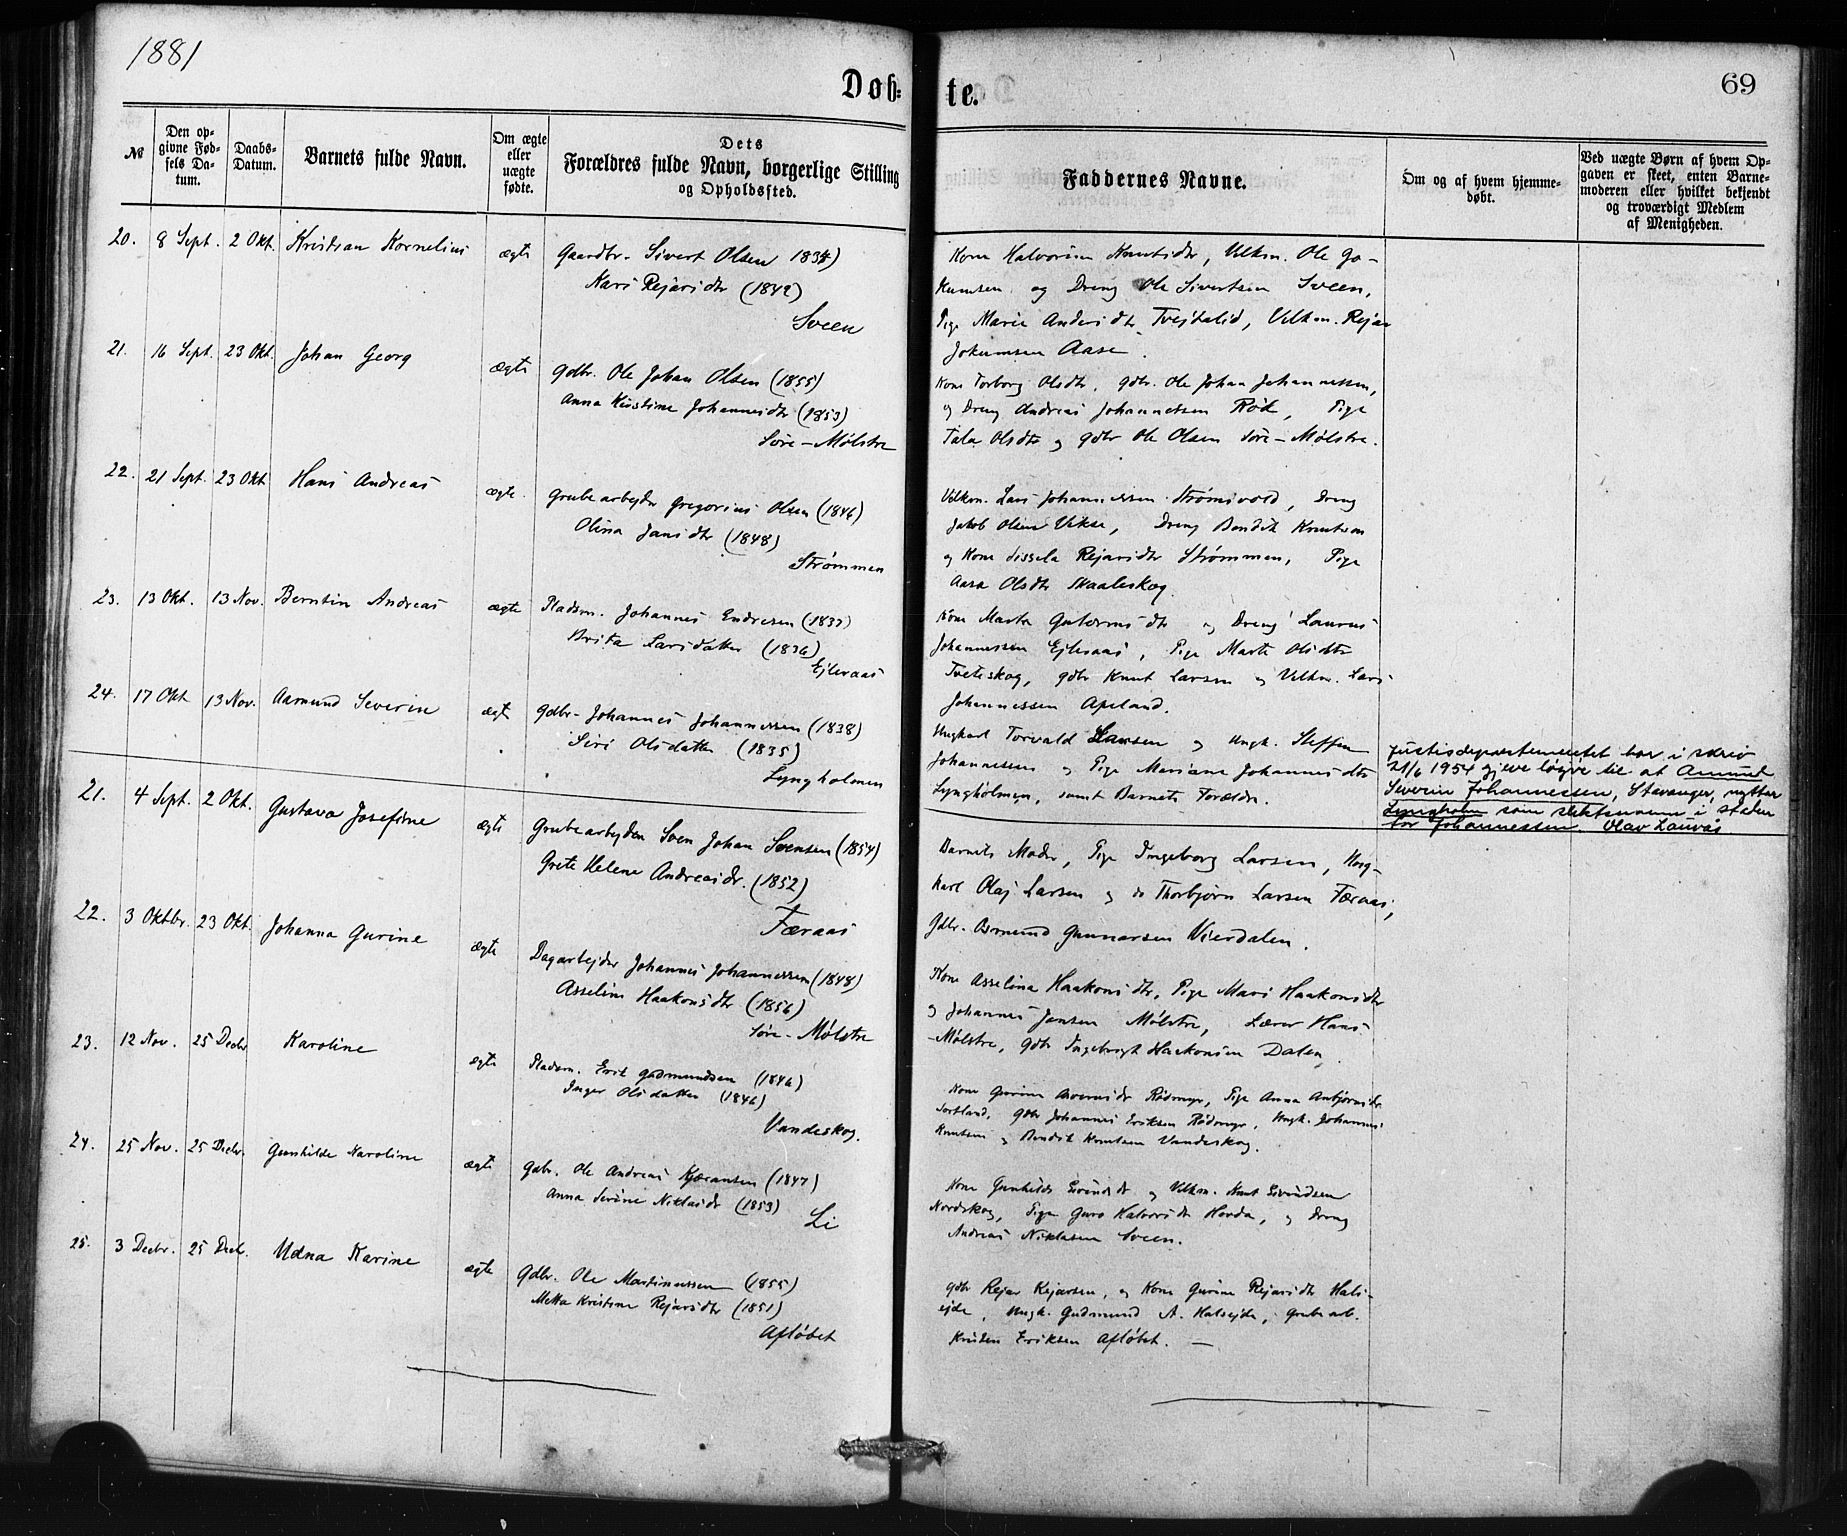 1881
Døb-
te.
69
№
Den op-
givne Fød-
sels Da-
tum.
Daabs-
Datum.
Barnets fulde Navn.
Om ægte
eller
uægte
fødte.
Dets
Forældres fulde Navn, borgerlige Stilling
og Opholdssted.
Faddernes Navne.
Om og af hvem hjemme-
døbt.
Ved uægte Børn af hvem Op-
gaven er skeet, enten Barne-
moderen eller hvilket bekjendt
og troværdigt Medlem
af Menigheden.
20. 8 Sept. 2 Okt. Kristian Kornelius ægte Gaardbr. Sivert Olsen 1834)
Kari Rejarsdtr (1842)
Sveen
Kone Halvorine Knutsdtr, Velkm. Ole Jo-
kumsen og Dreng Ole Sivertsen Sveen,
Pige Marie Andersdtr Tvejtalid, Velkm. Rejar
Jokumsen Aase.
21. 16 Sept. 23 Okt. Johan Georg ægte Gdbr. Ole Johan Olsen (1855)
Anna Kristine Johannesdtr (1853)
Søre-Mølstre
Kone Torborg Olsdtr, Gdbr. Ole Johan Johannessen,
og Dreng Andreas Johannessen Rød, Pige
Tala Olsdtr og Gdbr Ole Olsen Søre-Mølstre.
22. 21 Sept. 23 Okt Hans Andreas ægte. Grubearbejder Gregorius Olsen (1846)
Olina Jansdtr (1848)
Strømmen
Velkm. Lars Johannessen Strømsvold, Dreng
Jakob Olsen Vikse, Dreng Bendik Knutsen
og Kone Sissela Rejarsdtr Strømmen, Pige
Aasa Olsdtr Skaaleskog.
23. 13 Okt. 13 Nov. Berntin Andreas ægte Pladsm. Johannes Endresen (1837)
Brita Larsdatter (1836)
Ejleraas
Kone Marta Gutormsdtr og Dreng Laurus
Johannessen Ejleraas, Pige Marte Olsdtr
Tveteskog, Gdbr Knut Larsen og Velkm. Lars
Johannessen Apeland.
24. 17 Okt 13 Nov. Aamund Severin ægt Gdbr- Johannes Johannessen (1838)
Siri Olsdatter (1835)
Lyngholmen
Ungkarl Torvald Larsen og Ungk. Steffen
Johannessen og Pige Mariane Johannesdtr
Lyngholmen, samt Barnets Forældre.
Justisdepartementet har i skriv
21/6 1954 gjeve løyve til at Amund
Severin Johannessen, Stavanger, nyttar
Lyngholm som slektsnamn i staden
for Johannessen. Olav Lauvås
21. 4 Sept. 2 Okt. Gustava Josefine ægte Grubearbejder Sven Johan Svensen (1854)
Grete Helene Andreasdr. (1852)
Færaas
Barnets Moder, Pige Ingeborg Larsen, Ung-
karl Olaj Larsen og do Thorbjørn Larsen Færaas,
Gdbr. Gunnarsen Vierdalen.
22. 3 Oktbr. 23 Okt. Johanna Gurine ægte Dagarbejder Johannes Johannessen (1848)
Asseline Haakonsdtr (1856)
Søre-Mølstre
Kone Asselina Haakonsdtr, Pige Mari Haakonsdtr
og Johannes Jansen Mølstre, Lærer Hans
Mølstre, Gdbr Ingebrigt Haakonsen Dalen.
23. 12 Nov. 25 Decbr Karoline ægte Pladsm. Erik Gudmundsen (1846)
Inger Olsdatter (1846)
Vandeskog.
Kone Gurine Rødmyr, Pige Anna Anbjørnsdr
Sortland, Gdbr Johannes Eriksen Rødmyr, Ungk. Johannes
Knutsen og Bendik Knutsen Vandeskog.
24. 25 Nov. 25 Decbr. Gunhilde Karoline ægte Gdbr. Ole Andreas Kjøransen (1847)
Anna Serine Niklasdr (1853)
Li
Kone Gunhilde og Velkm. Knut
Nordskog, Pige Guro Halvorsdtr Hovda, og Dreng
Andreas Niklasen Sveen.
25. 3 Decbr. 25 Decb. Udna Karine ægte Gdbr. Ole Martinussen (1855)
Metta Kristine Rejarsdtr (1851)
Afløbet
Gdbr Rejar Rejarsen, og Kone Gurine Rejarsdtr Hals-
ejde, Ungk. Gudmund A. Halsejde, Grubearb.
Kristen Eriksen Afløbet. —